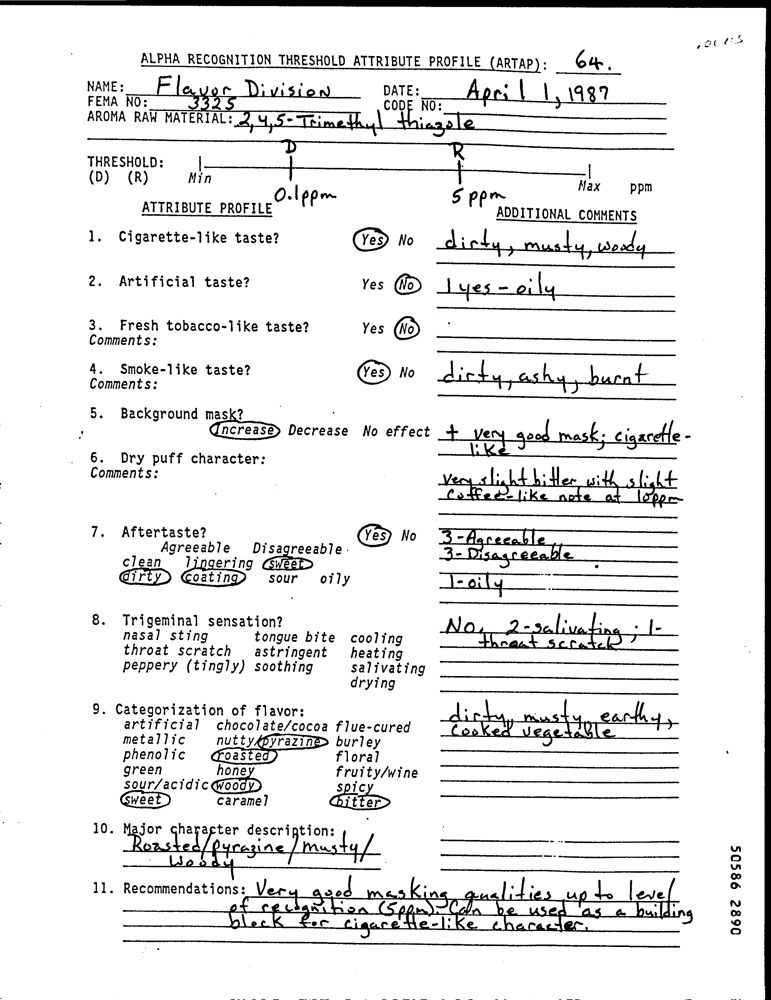 ALPHA RECOGNITION THRESHOLD ATTRIBUTE PROFILE (ARTAP): 64.
NAME: Flavor Division DATE: April 1, 1987
FEMA NO: 3325 CODE NO:
AROMA RAW MATERIAL: 2,4,5-Trimethyl thiazole
D R
THRESHOLD:
(D) (R) Min Max ppm
0.1ppm 5 ppm
ATTRIBUTE PROFILE ADDITIONAL COMMENTS
1. Cigarette-like taste? Yes No dirty, musty, woody
2. Artificial taste? Yes No 1 yes - oily
3. Fresh tobacco-like taste? Yes No
Comments:
4. Smoke-like taste? Yes No dirty, ashy, burnt
Comments:
5. Background mask?
Increase Decrease No effect + very good mask; cigarette-
like
6. Dry puff character:
Comments: Very slight bitter with slight
coffee-like note at 10ppm
7. Aftertaste? Yes No 3-Agreeable
Agreeable Disagreeable 3-Disagreeable
clean lingering sweet
dirty coating sour oily 1-oily
8. Trigeminal sensation? No, 2-salivating; 1-
nasal sting tongue bite cooling throat scratch
throat scratch astringent heating
peppery (tingly) soothing salivating
drying
9. Categorization of flavor: dirty, musty, earthy,
artificial chocolate/cocoa flue-cured cooked vegetable
metallic nutty/pyrazine burley
phenolic roasted floral
green honey fruity/wine
sour/acidic woody spicy
sweet caramel bitter
10. Major character description:
Roasted/pyrazine/musty/
woody
11. Recommendations: Very good masking qualities up to level
of recognition (5ppm). Can be used as a building
block for cigarette-like character.
50586 2890